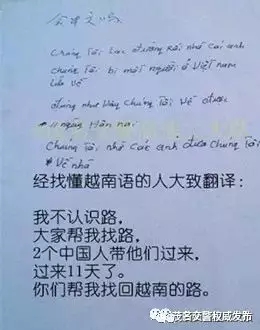 会中文吗
Chúng Tôi Lạc đường Rồi nhờ Các anh
Chúng Tôi bị một người ở Việt nam
Lừa về
như Vậy Chúng Tôi Về được
11 ngày Hôm nay
Chúng Tôi nhờ Các anh đưa Chúng Tôi
Về nhà
经找懂越南语的人大致翻译：
我不认识路，
大家帮我找路，
2个中国人带他们过来，
过来11天了。
你们帮我找回越南的路。
茂名交警权威发布